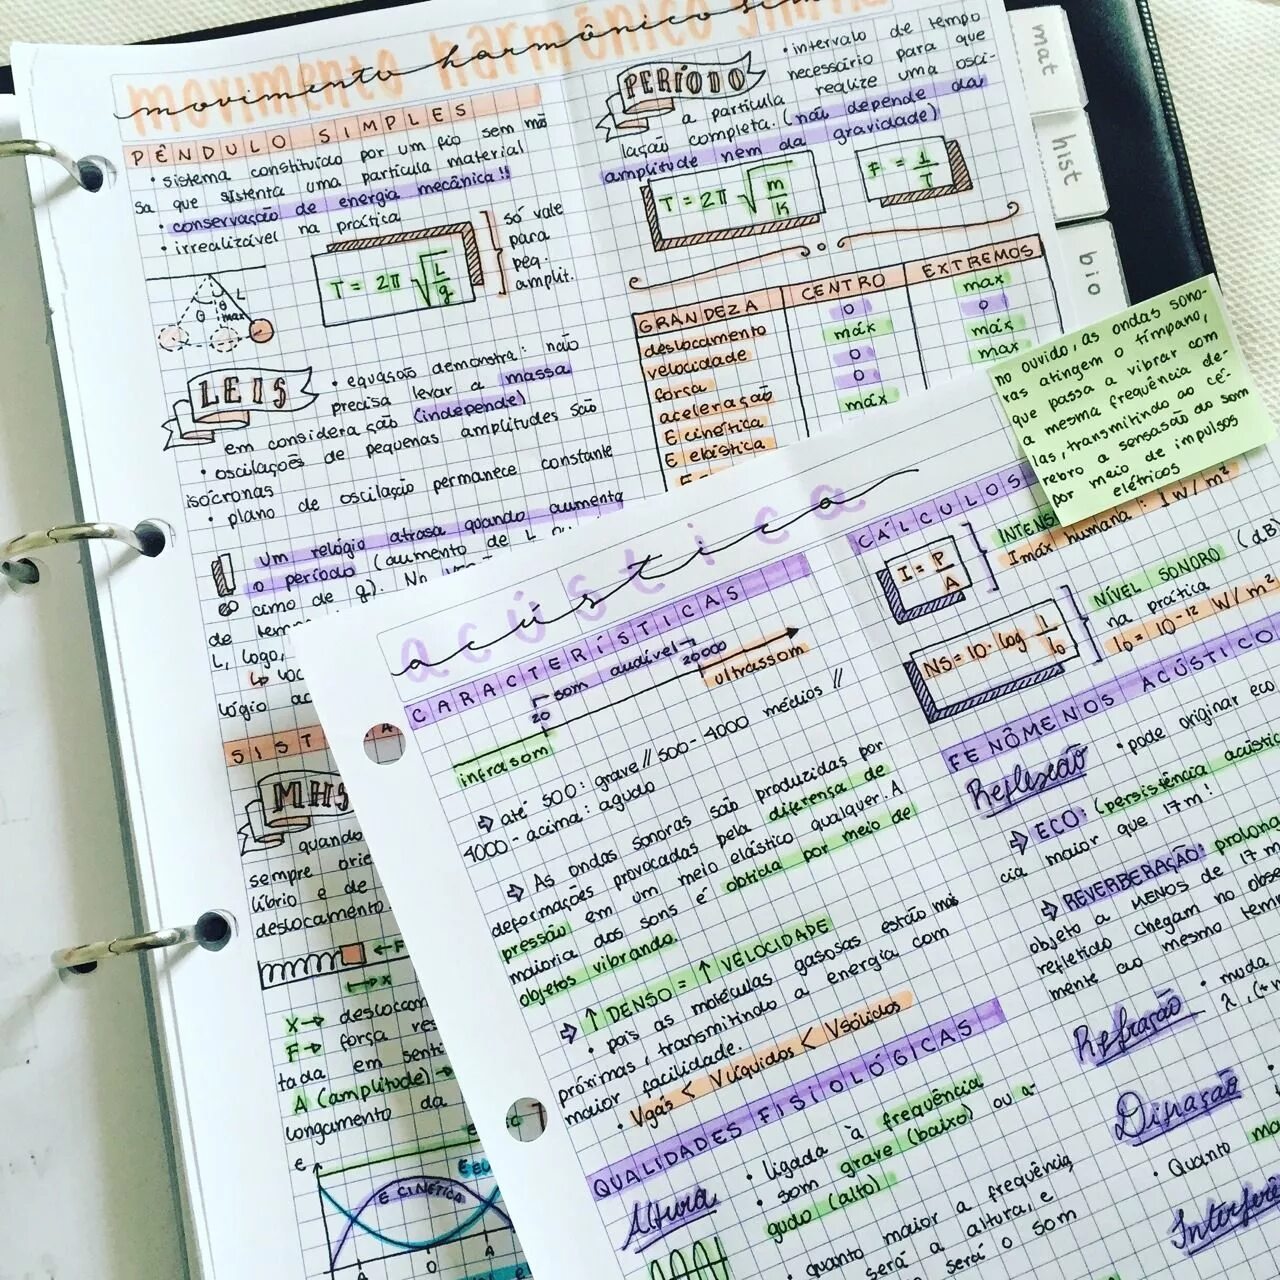 movimento harmônico sim
PÊNDULO SIMPLES
• sistema constituído por um fio sem mas
sa que sustenta uma partícula material
• conservação de energia mecânica!!
• irrealizável na prática
T = 2π √L/g
só vale
para
peq.
amplit.
L
θ
θ
max
LEIS
• equação demonstra: não
precisa levar a massa
em consideração (independe)
• oscilações de pequenas amplitudes são
isócronas
• plano de oscilação permanece constante
um relógio atrasa quando aumenta
o período (aumento de L
cimo de g). No
de tem
L, logo,
↳ loc
lógio at
SIST
MHS
quando
sempre orie
líbrio e de
deslocamento.
← F
x
X → deslocam
F → força res
tada em senti
A (amplitude) →
longamento da
E
E CINÉTICA
A
0
A
PERÍODO
• intervalo de tempo
necessário para que
a partícula realize uma osci-
lação completa. (não depende da
amplitude nem da gravidade)
T = 2π √m/K
F = 1/T
GRANDEZA CENTRO EXTREMOS
deslocamento 0 max
velocidade máx 0
força 0 máx
aceleração 0 max
E cinética máx
E elástica
mat
hist
bio
no ouvido, as ondas sono-
ras atingem o tímpano,
que passa a vibrar com
a mesma frequência de-
las, transmitindo ao cé-
rebro a sensação do som
por meio de impulsos
elétricos
acústica
CARACTERÍSTICAS
infrasom
20
som audível →
20000
ultrassom
⇒ até 500: grave // 500 - 4000 médios //
4000 - acima: agudo
⇒ As ondas sonoras são produzidas por
deformações provocadas pela diferensa de
pressão em um meio elástico qualquer. A
maioria dos sons é obtida por meio de
objetos vibrando.
⇒ ↑ DENSO = ↑ VELOCIDADE
• pois as moléculas gasosas estão mais
próximas, transmitindo a energia com
maior facilidade.
• Vgás < Vlíquidos < Vsólidos
QUALIDADES FISIOLÓGICAS
Altura
• ligada à frequência
• som grave (baixo) ou a-
gudo (alto)
quanto maior a frequência,
será a altura, e
será o som
CÁLCULOS
I = P/A
INTENS
Imáx humana: 1 W/m²
NS = 10 · log I/I₀
NÍVEL SONORO (dB)
na prática
I₀ = 10⁻¹² W/m²
FENÔMENOS ACÚSTICO
Reflexão
• pode originar eco
⇒ ECO: (persistência acústic
cia maior que 17m!
⇒ REVERBERAÇÃO: prolong
objeto a MENOS de 17 m
refletido chegam no obse
mente ao mesmo temp
Refração
• muda
λ, (+
Difração
• Quanto ma
Interferê